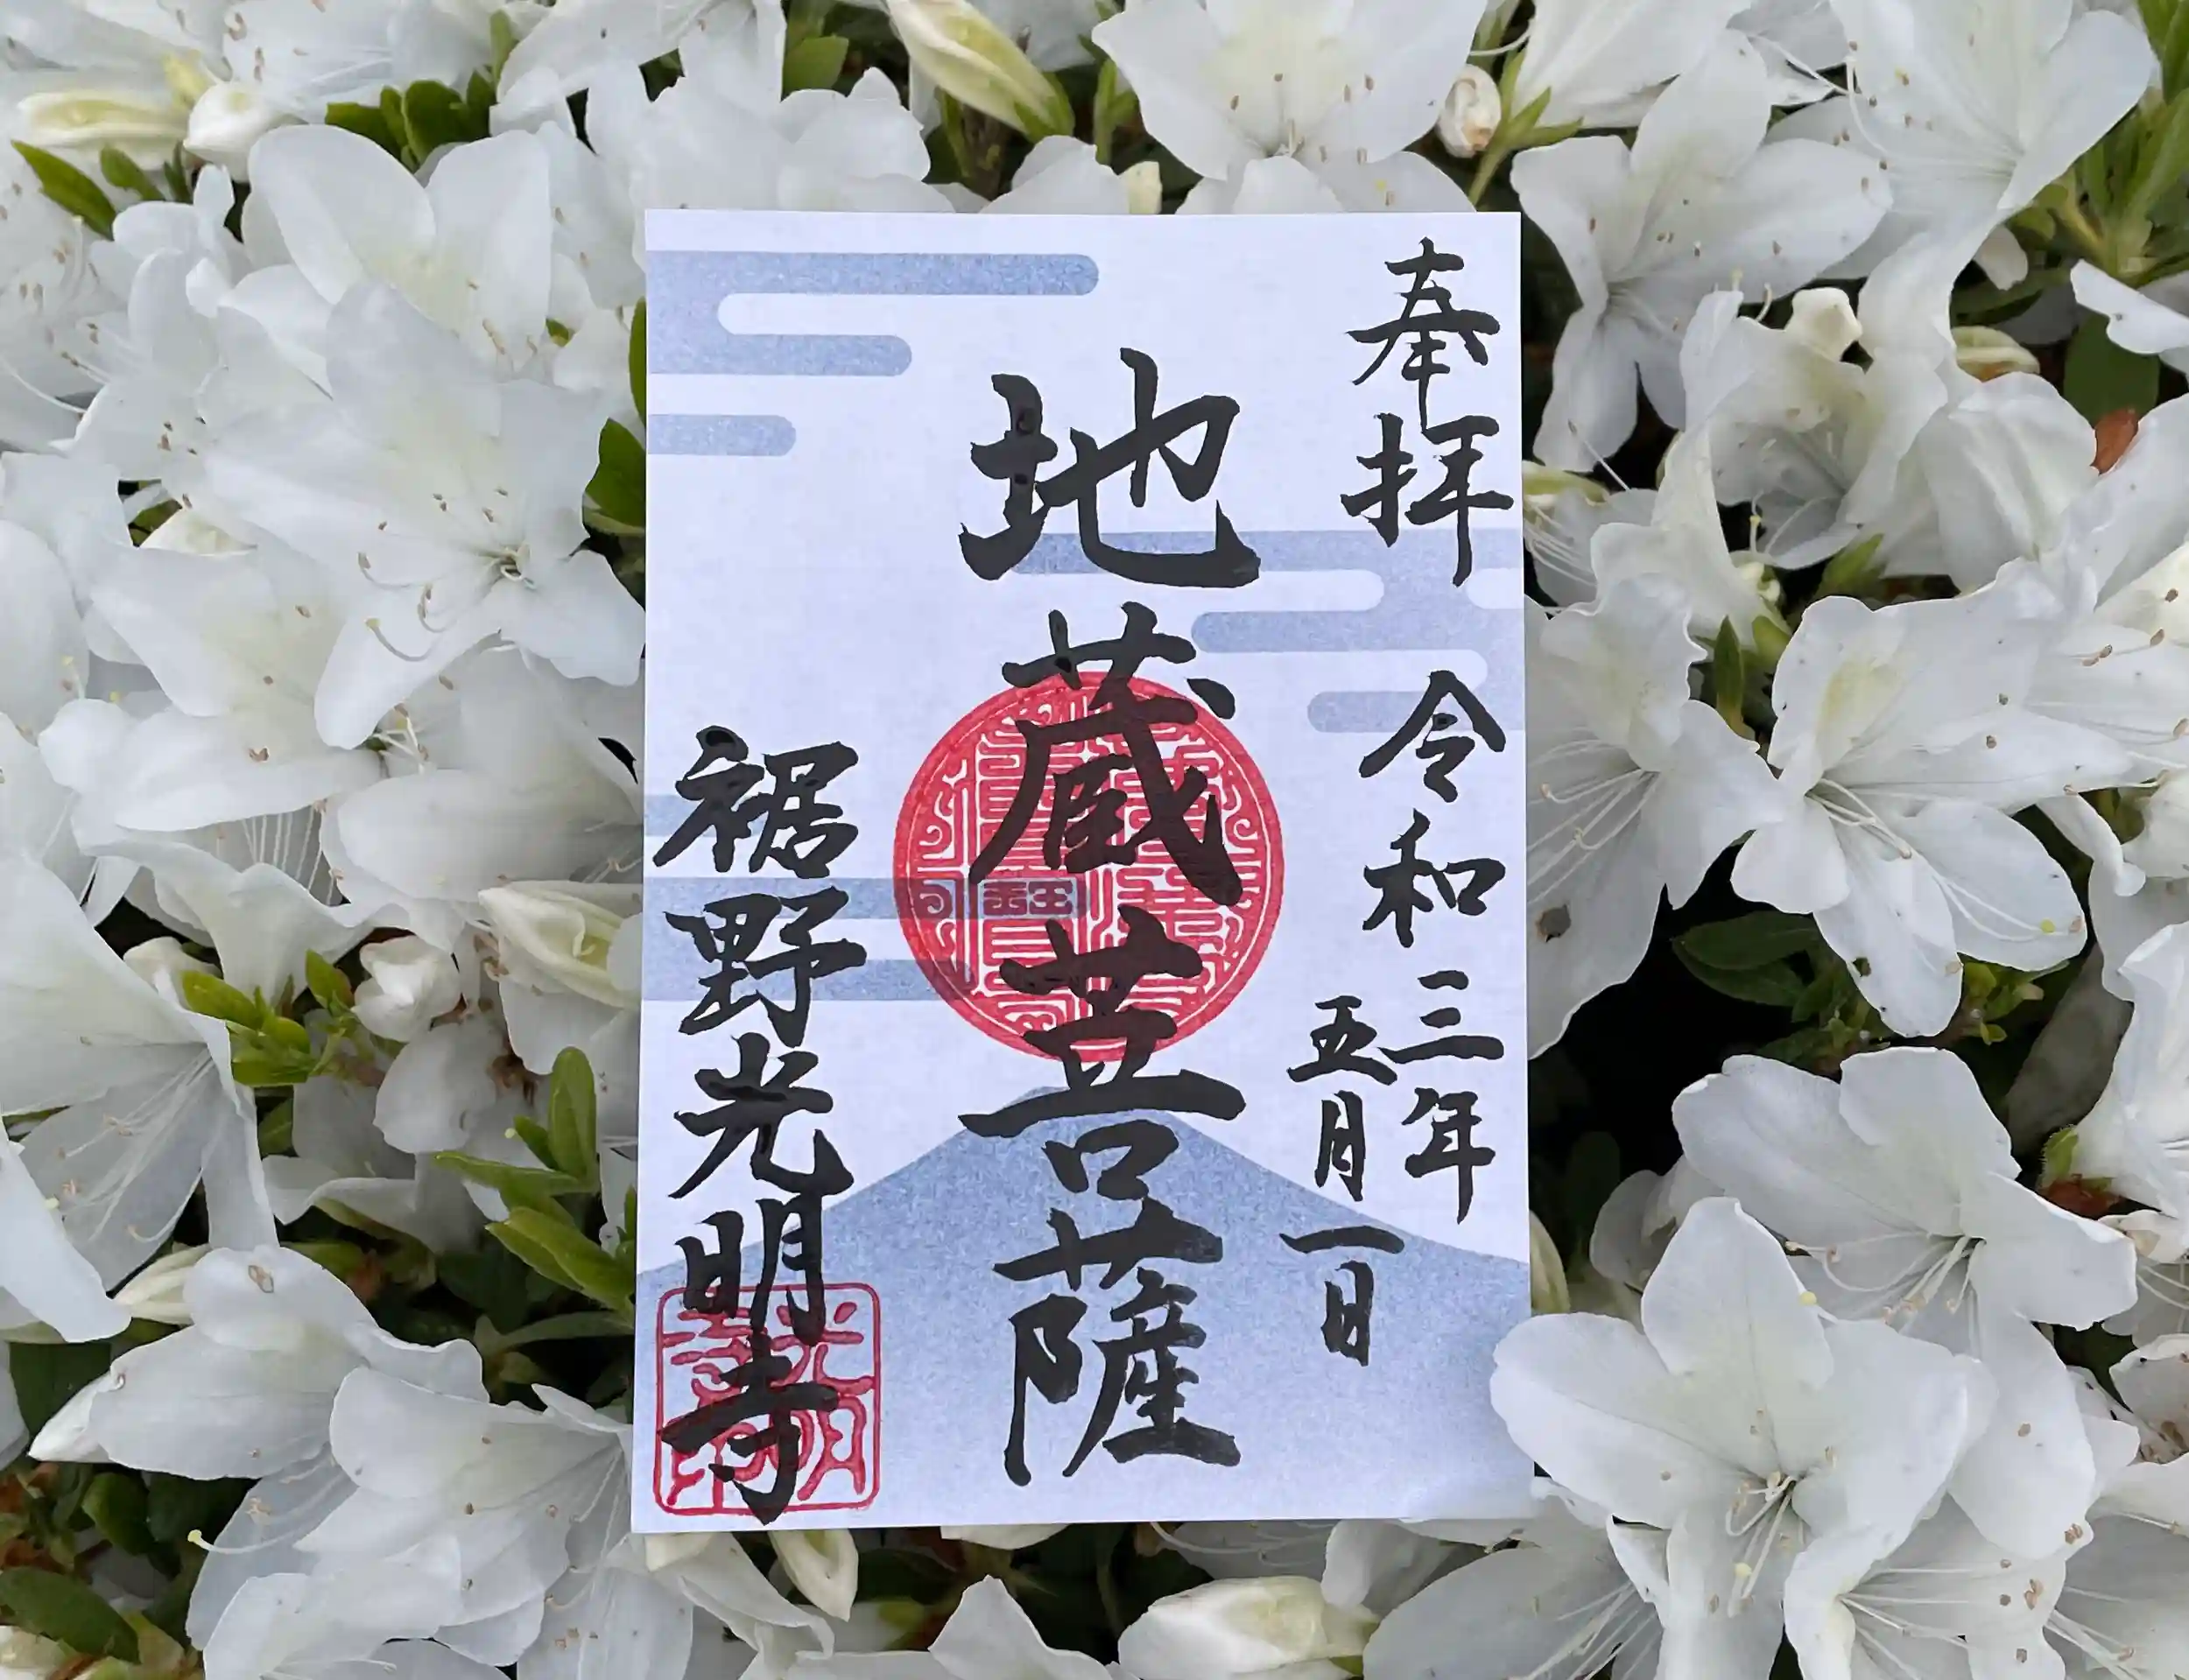 奉拝
令和三年
五月一日
地蔵菩薩
裾野光明寺